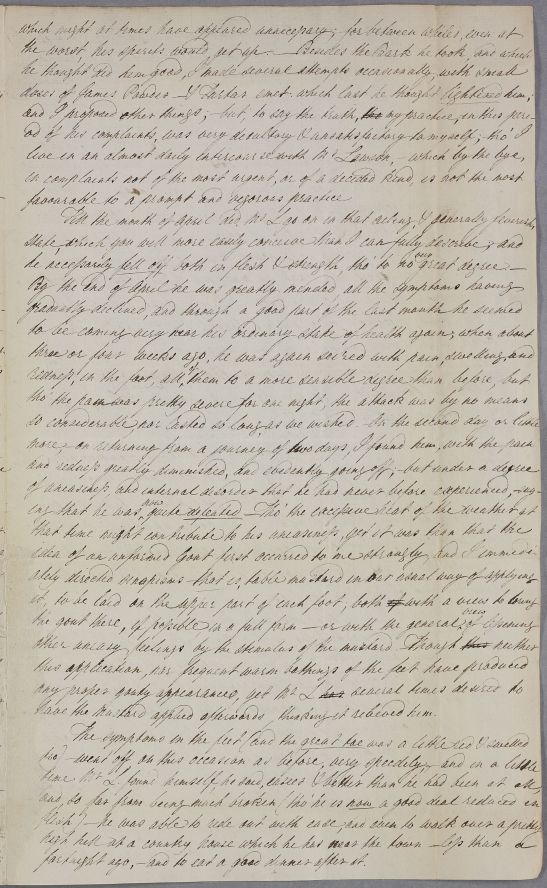 which might at times have appeared unnecessary; for between whiles, even at
the worst, his spirits would get up — Besides the Bark he took, and which
he thought did him good, I made several attempts occasionally, with small
doses of James's Powder & Tartar emet: which last he thought lightened him;
and I proposed other things; but, to say the truth, my practice, in this peri-
od of his complaints, was very desultory & unsatisfactory to myself; tho' I
live in an almost daily intercourse with Mr Lawson, – which by the bye,
in complaints not of the most urgent, or of a decided kind, is not the most
favourable to a prompt and vigorous practice
Till the month of April did Mr L go on in that aching, & generally feverish
state, which you will more easily conceive than I can fully describe; and
he necessarily fell off both in flesh & strength, tho' to no very great degree. —
By the end of April he was greatly mended all the symptoms having
gradually declined, and through a good part of the last month he seemed
to be coming very near his ordinary state of health again; when about
three or four weeks ago, he was again seized with pain, swelling, and
redness, in the foot, all of them to a more sensible degree than before, but
tho' the pain was pretty severe for one night, the attack was by no means
so considerable, nor lasted so long, as we wished – In the second day or little
more, on returning from a journey of two days, I found him, with the pain
and redness greatly diminished, and evidently going off; – but under a degree
of uneasiness, and internal disorder that he had never before experienced, – say-
ing that he was quite defeated – Tho' the excessive heat of the weather at
that time might contribute to his uneasiness, yet it was then that the
idea of an unformed Gout first occurred to me strongly, and I immedi-
ately directed sinapisms – that is table mustard in our usual way of applying
it, to be laid on the upper part of each foot, both with a view to bring
the gout there, if possible in a full form – or with the general view of
other uneasy feelings by the stimulus of the mustard. Though neither
this application, nor frequent warm bathings of the feet have produced
any proper gouty appearances, yet Mr L several times desired to
have the Mustard applied afterwards, thinking it relieved him.
The symptoms in the feet (and the great toe was a little red & swelled
too) – went off on this occasion as before, very speedily; and in a little
time Mr L found himself, he said, easier & better than he had been at all,
and, so far from being much broken (tho' he is now a good deal reduced in
flesh) – he was able to ride out with ease, and even to walk over a pretty
high hill up a country house which he has near the town – less than a
fortnight ago, – and to eat a good dinner after it.